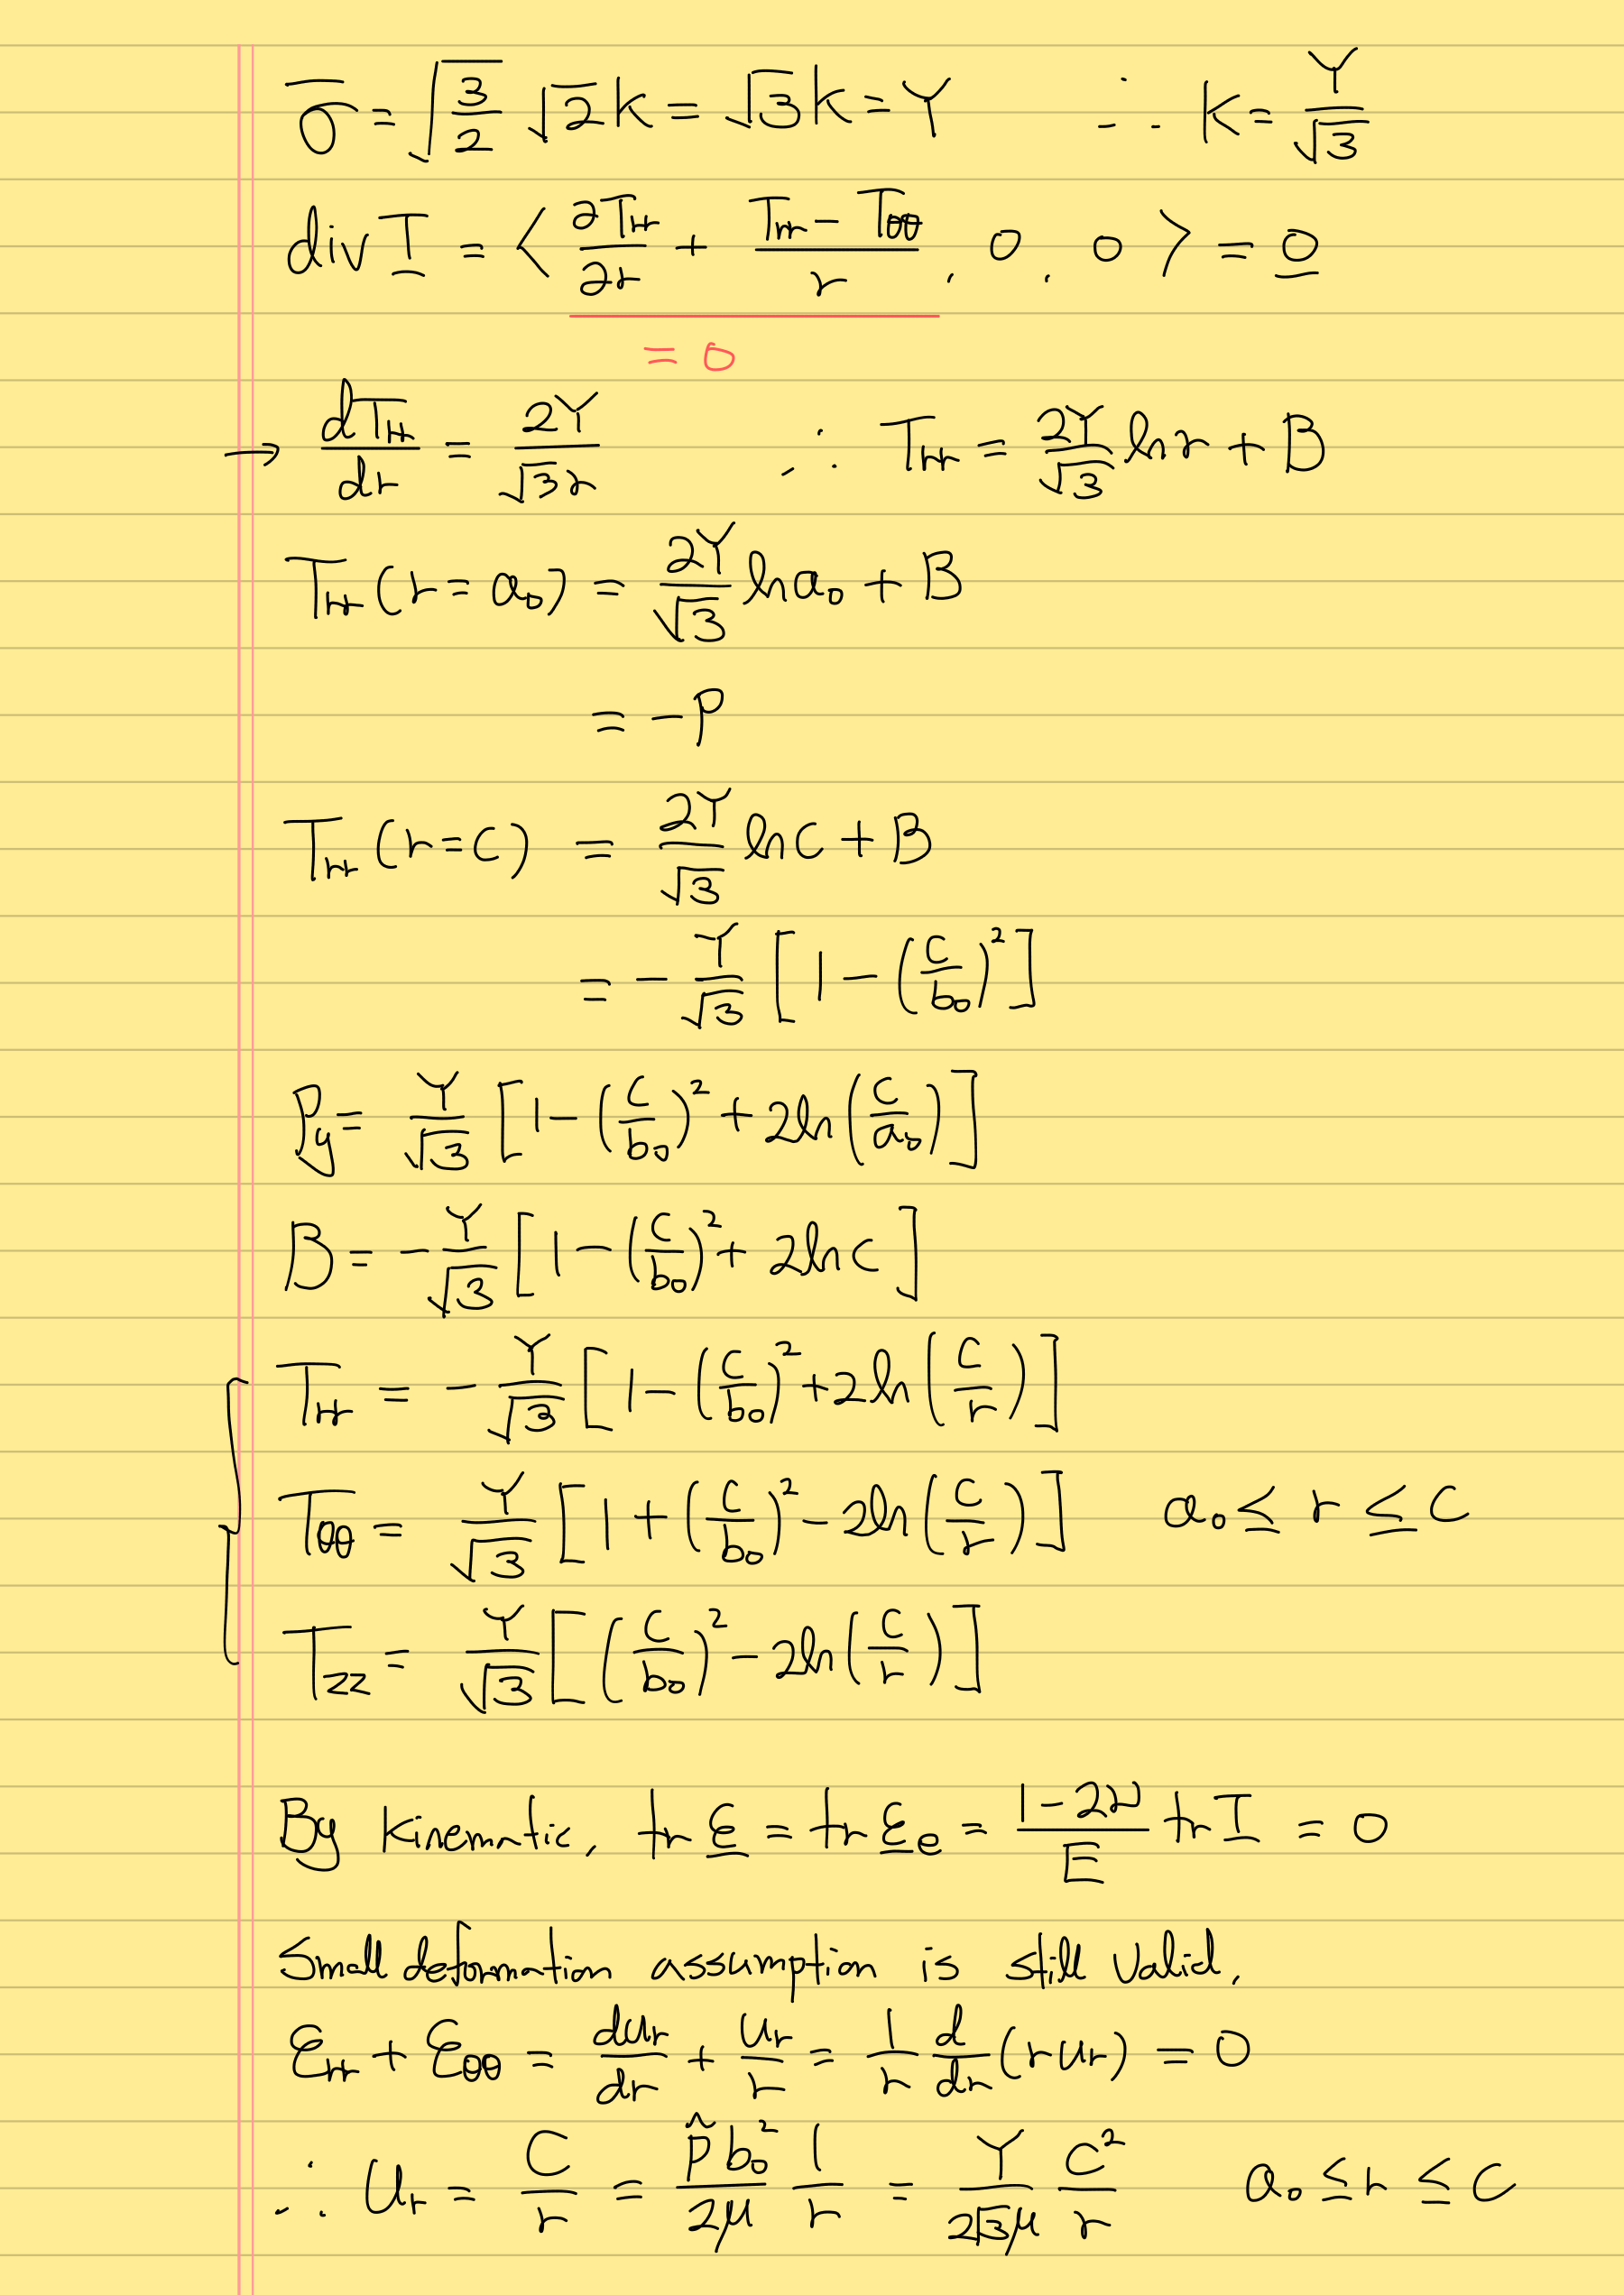 σ̅ = √(3/2) √2 k = √3 k = Y ∴ k = Y/√3
div T = < ∂Trr/∂r + (Trr − Tθθ)/r , 0 , 0 > = 0
= 0
→ dTrr/dr = 2Y/(√3 r) ∴ Trr = (2Y/√3) ln r + B
Trr (r = a₀) = (2Y/√3) ln a₀ + B
= −P
Trr (r = c) = (2Y/√3) ln c + B
= − (Y/√3) [1 − (c/b₀)²]
Py = (Y/√3) [1 − (c/b₀)² + 2ln(c/a₀)]
B = − (Y/√3) [1 − (c/b₀)² + 2ln c]
Trr = − (Y/√3) [1 − (c/b₀)² + 2ln(c/r)]
Tθθ = (Y/√3) [1 + (c/b₀)² − 2ln(c/r)] a₀ ≤ r ≤ c
Tzz = (Y/√3) [(c/b₀)² − 2ln(c/r)]
By kinematic, tr ε = tr εe = ((1−2ν)/E) tr T = 0
Small deformation assumption is still valid.
εrr + εθθ = dur/dr + ur/r = (1/r) d/dr (r ur) = 0
∴ ur = C/r = (p̂ b₀²/2μ) (1/r) = (Y/(2√3 μ)) (c²/r) a₀ ≤ r ≤ c